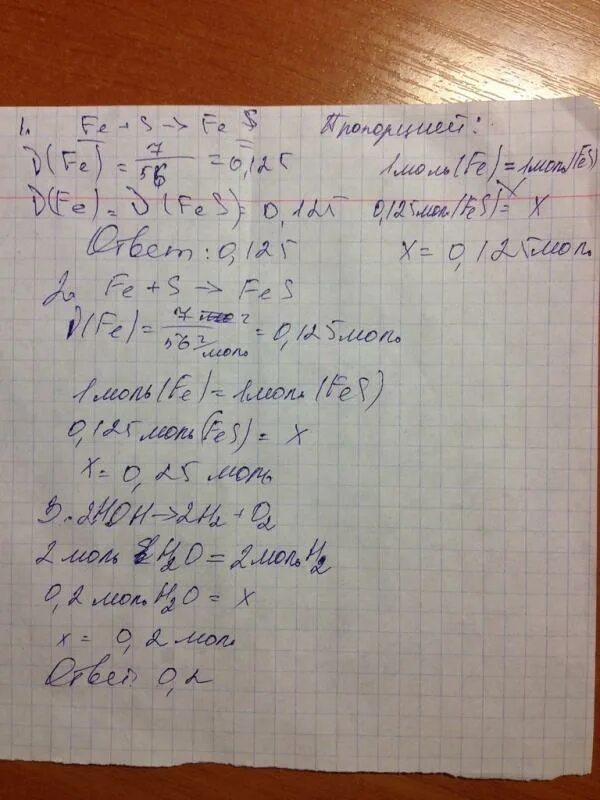 1. Fe + S → FeS
ν(Fe) = 7/56 = 0,125
ν(Fe) = ν(FeS) = 0,125
Ответ: 0,125
Пропорцией:
1 моль (Fe) = 1 моль (FeS)
0,125 моль (FeS) = x
x = 0,125 моль
2. Fe + S → FeS
ν(Fe) = 7 г/56 г/моль = 0,125 моль
1 моль (Fe) = 1 моль (FeS)
0,125 моль (FeS) = x
x = 0,25 моль
3. 2HOH → 2H₂ + O₂
2 моль H₂O = 2 моль H₂
0,2 моль H₂O = x
x = 0,2 моль
Ответ 0,2